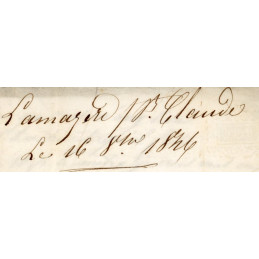 Lamayere p/ St Claude
Le 16 8bre 1846